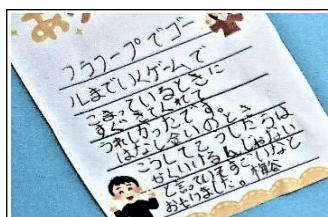 フラフープでゴー
ルまでいくゲームで
こまっているときに
すぐきてくれて
うれしかったです。
はなし合いのとき
こうしてこうしたらは
やくいけるんじゃない
て言っていてすごいなと
おもいました。